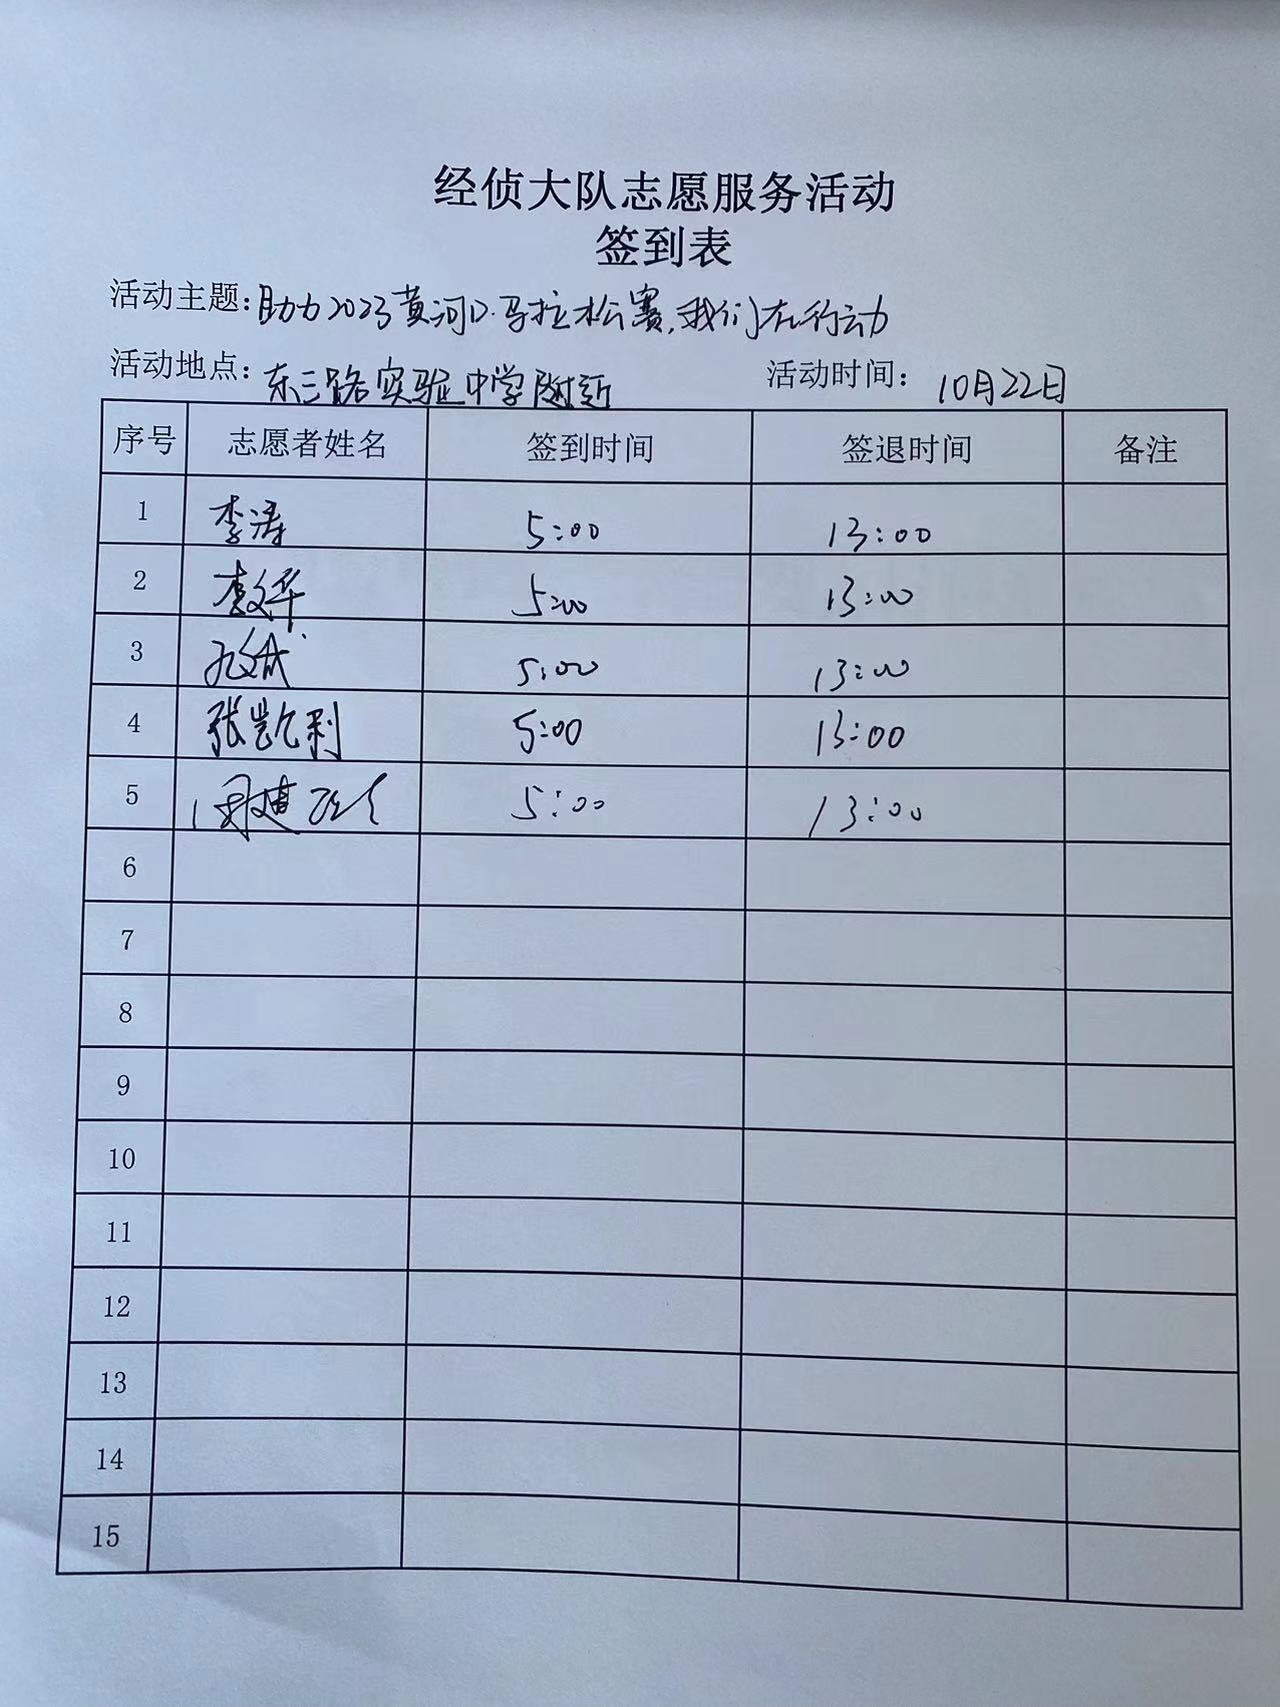 经侦大队志愿服务活动
签到表
活动主题:助力2023黄河口·马拉松赛,我们在行动
活动地点:东三路实验中学附近 活动时间:10月22日
序号 志愿者姓名 签到时间 签退时间 备注
1 李涛 5:00 13:00
2 李文华 5:00 13:00
3 5:00 13:00
4 张凯利 5:00 13:00
5 5:00 13:00
6
7
8
9
10
11
12
13
14
15